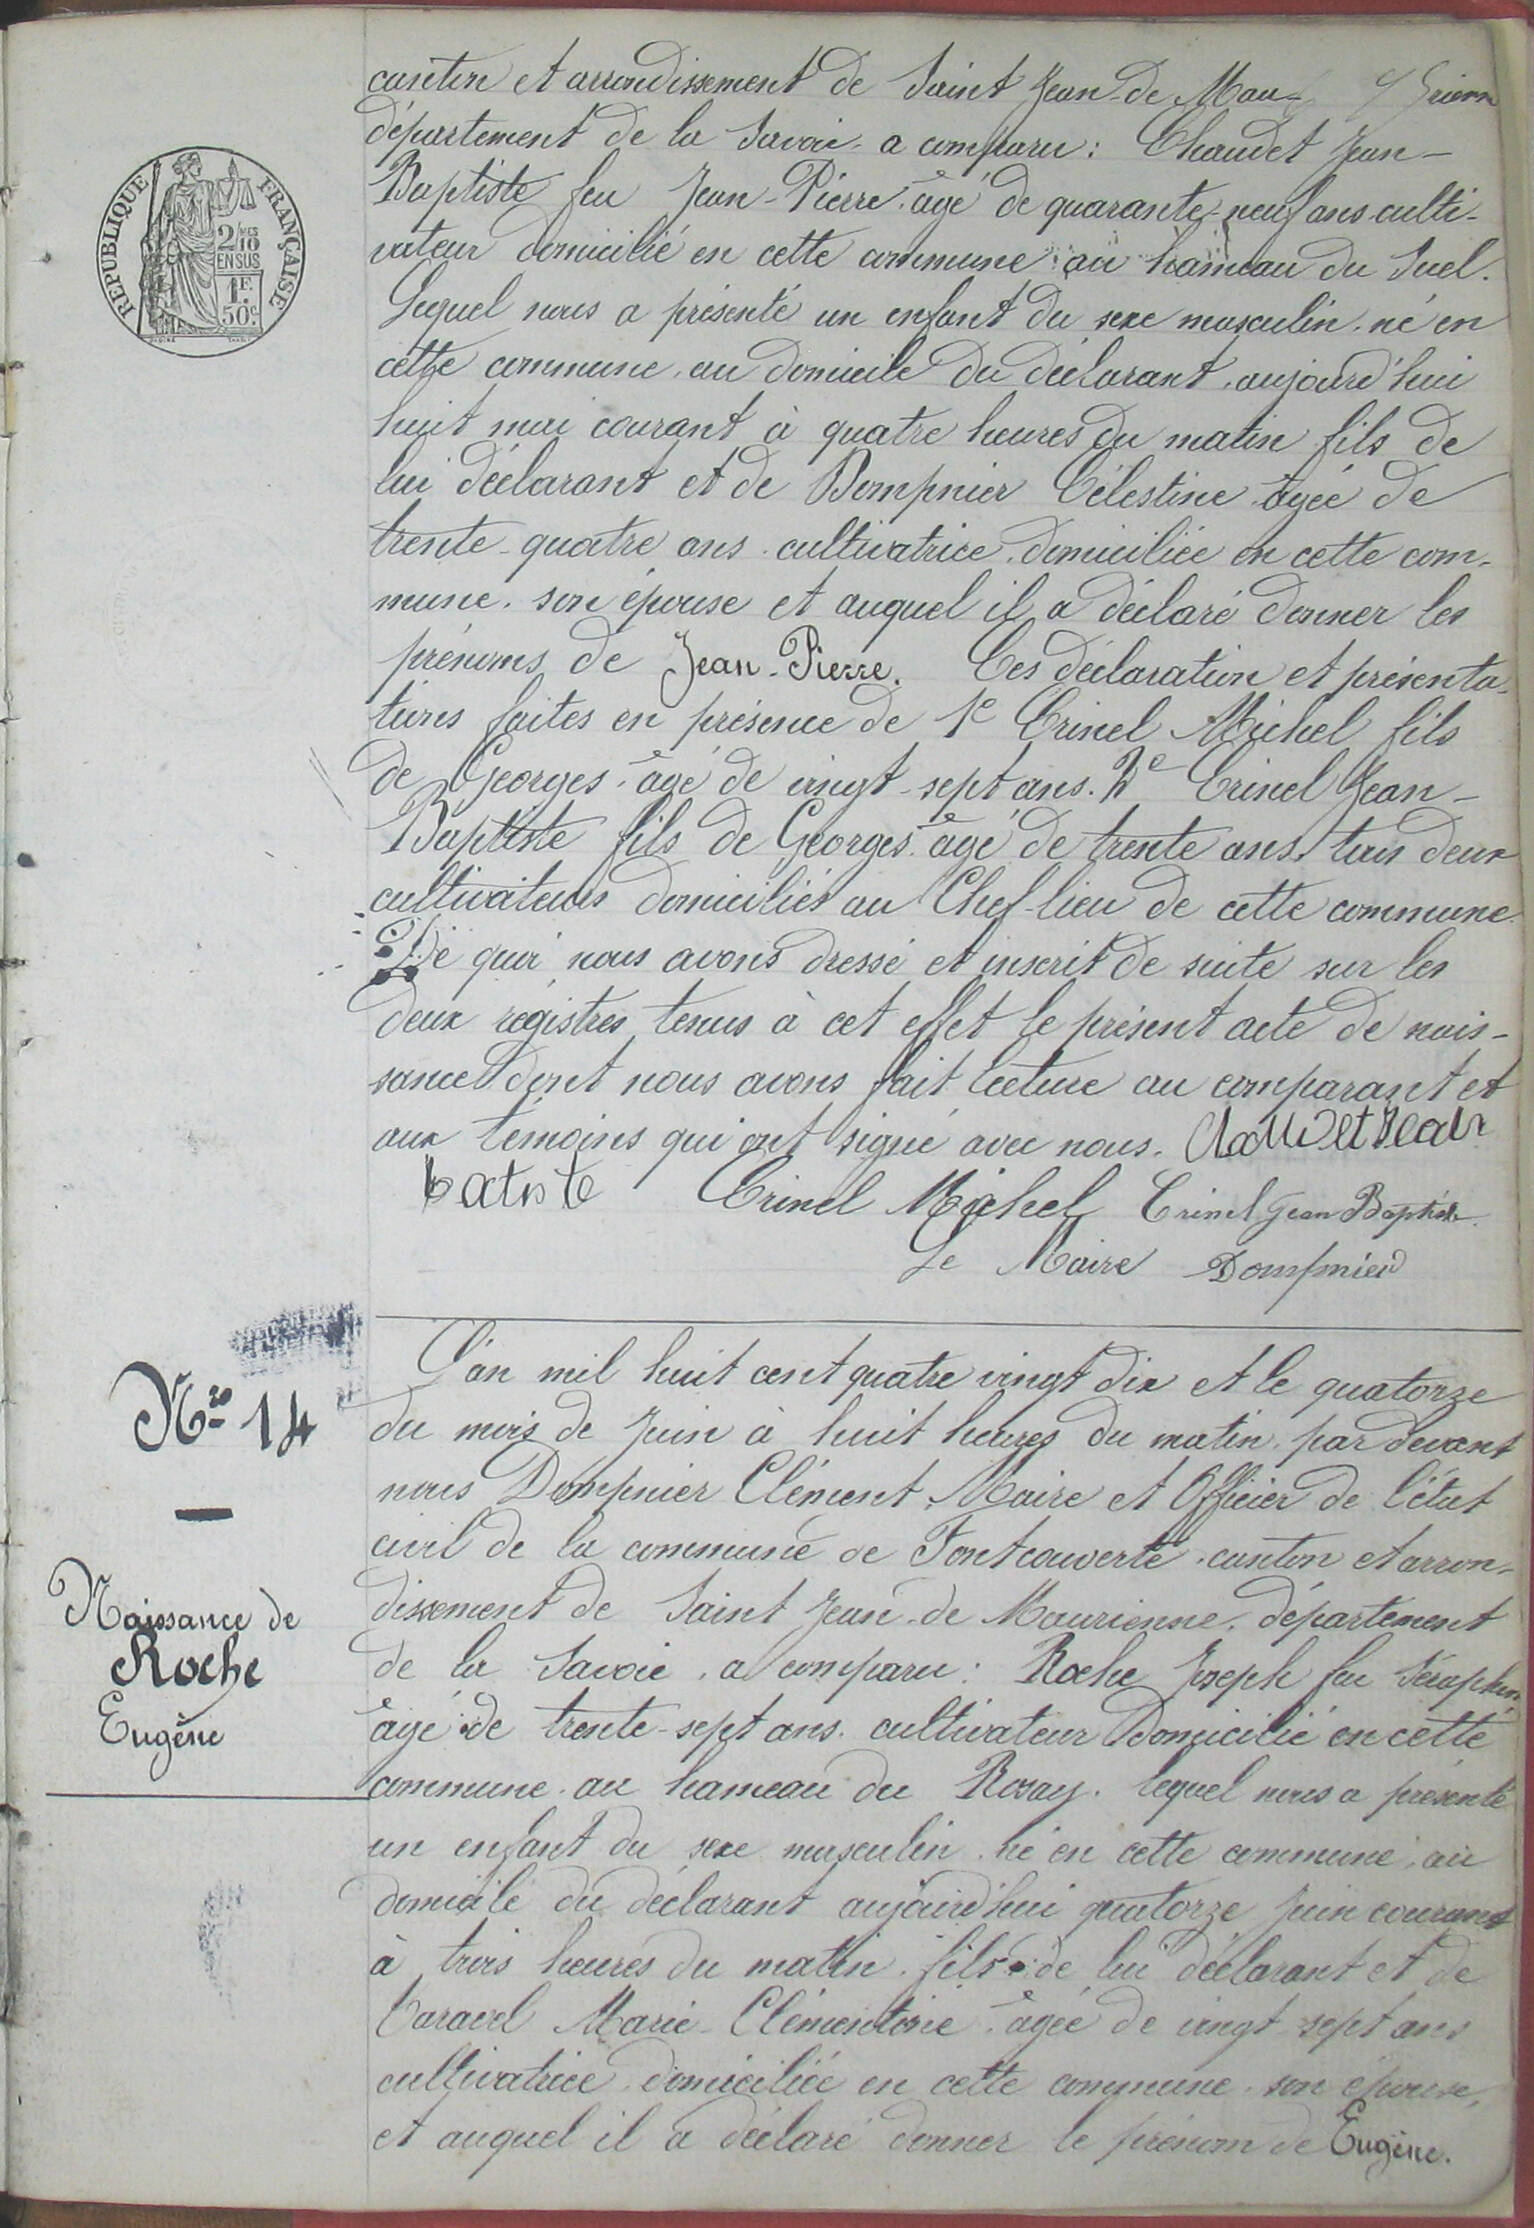 canton et arrondissement de Saint Jean-de Mau-rienne
département de la Savoie. a comparu : Chaudet Jean-
Baptiste feu Jean-Pierre. âgé de quarante-neuf ans. culti-
vateur domicilié en cette commune au hameau du Suel.
Lequel nous a présenté un enfant du sexe masculin. né en
cette commune. au domicile du déclarant. aujourd'hui
huit mai courant à quatre heures du matin fils de
lui déclarant et de Dompnier Célestine âgée de
trente-quatre ans. cultivatrice. domiciliée en cette com-
mune. son épouse et auquel il a déclaré donner les
prénoms de Jean-Pierre. Ces déclaration et présenta-
tions faites en présence de 1e Crinel Michel fils
de Georges. âgé de vingt-sept ans. 2e Crinel Jean-
Baptiste fils de Georges. âgé de trente ans. tous deux
cultivateurs domiciliés au Chef-lieu de cette commune.
De quoi nous avons dressé et inscrit de suite sur les
deux régistres tenus à cet effet le présent acte de nais-
sance dont nous avons fait lecture au comparant et
aux témoins qui ont signé avec nous. Chaudet Jean
batiste Crinel Michel Crinel Jean Baptiste
Le Maire Dompnier
REPUBLIQUE FRANÇAISE
2/10 EN SUS
1F. 50c
Nro 14
Naissance de
Roche
Eugène
L'an mil huit cent quatre vingt dix et le quatorze
du mois de Juin à huit heures du matin. par devant
nous Dompnier Clément, Maire et Officier de l'état
civil de la commune de Fontcouverte. canton et arron-
dissement de Saint Jean-de Maurienne. département
de la Savoie. a comparu : Roche Joseph feu Séraphin
âgé de trente-sept ans. cultivateur domicilié en cette
commune. au hameau du Rosay. lequel nous a présenté
un enfant du sexe masculin. né en cette commune. au
domicile du déclarant aujourd'hui quatorze Juin courant
à trois heures du matin. fils de lui déclarant et de
Caravel Marie-Clémentine. âgée de vingt sept ans
cultivatrice. domiciliée en cette commune. son épouse,
et auquel il a déclaré donner le prénom de Eugène.